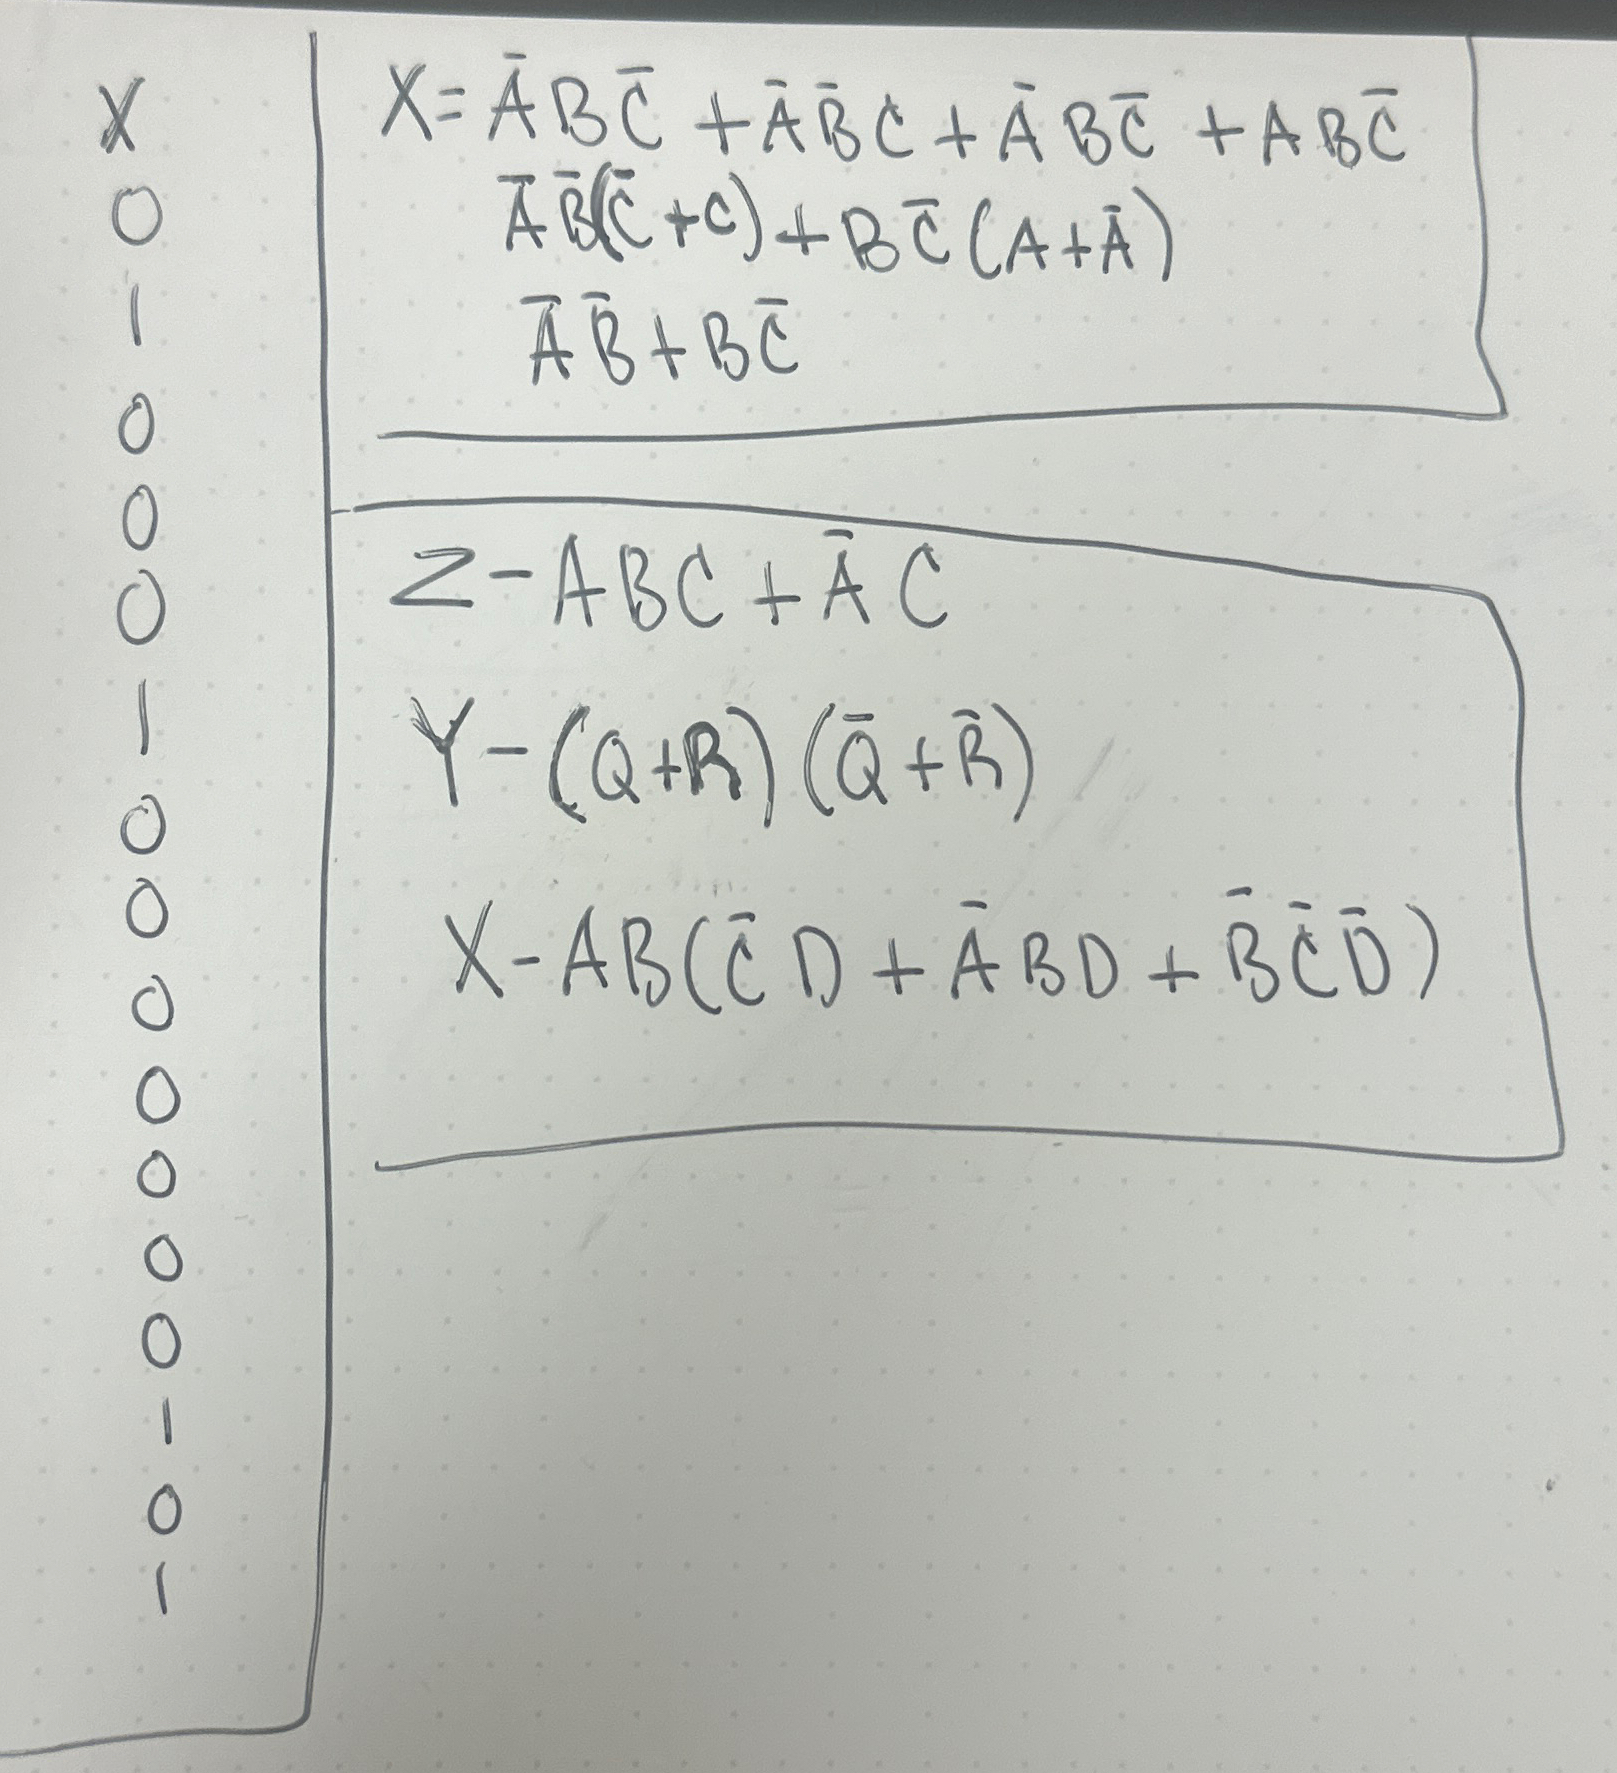 X
0
1
0
0
0
1
0
0
0
0
0
0
0
1
0
1
X= A̅ B C̅ + A̅ B̅ C + A̅ B C̅ + A B C̅
A̅ B̅(C̅ + C) + B C̅ (A + A̅)
A̅ B̅ + B C̅
Z - A B C + A̅ C
Y - (Q + R) (Q̅ + R̅)
X - A B (C̅ D + A̅ B D + B̅ C̅ D̅)